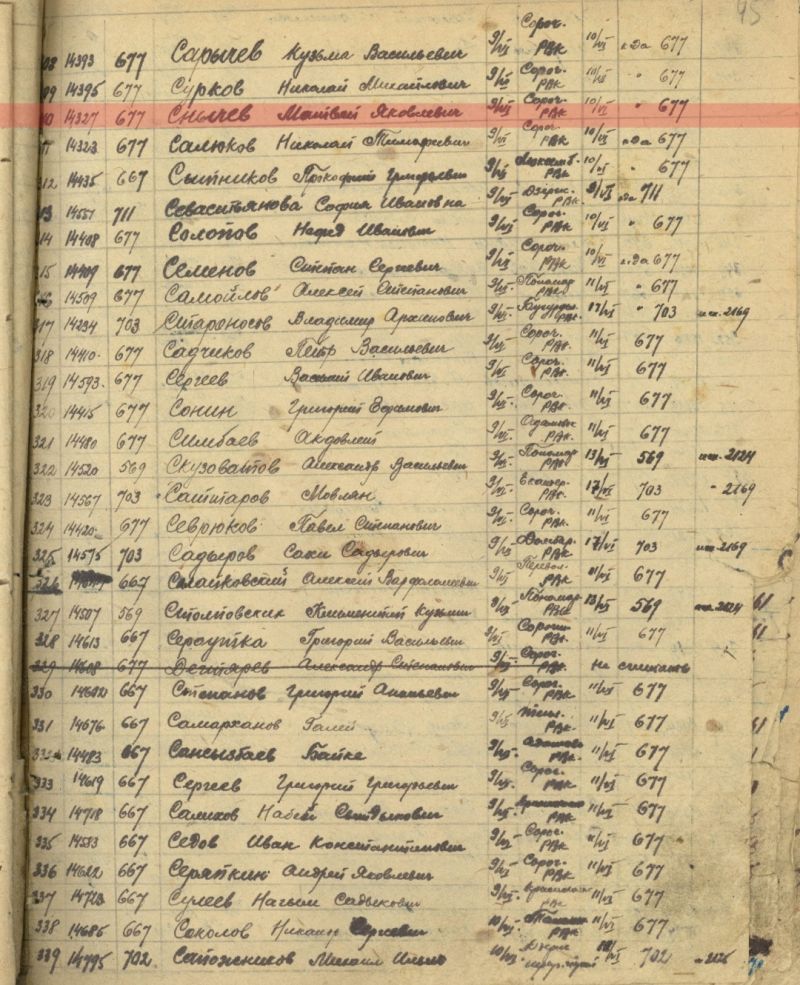 95
08 14393 677 Сарычев Кузьма Васильевич 9/VI Сороч. РВК 10/VI к-да 677
09 14395 677 Сурков Николай Михайлович 9/VI Сороч. РВК 10/VI " 677
10 14327 677 Снычев Матвей Яковлевич 9/VI Сороч. РВК 10/VI " 677
11 14323 677 Салюков Николай Тимофеевич 9/VI Сороч. РВК 10/VI к-да 677
312 14435 667 Сытников Прокофий Григорьевич 9/VI РВК 10/VI " 677
13 14551 711 Севастьянова София Ивановна 9/VI Дзерж. РВК 9/VI к-да 711
14 14408 677 Солопов Иванович 9/VI Сороч. РВК 10/VI " 677
15 14409 677 Семенов Степан Сергеевич 9/VI Сороч. РВК 10/VI к-да 677
14509 677 Самойлов Алексей Степанович 9/VI Пономар. РВК 11/VI " 677
317 14234 703 Староносов Владимир Архипович 9/VI РВК 17/VI " 703 2169
318 14410 677 Садчиков Петр Васильевич 9/VI Сороч. РВК 11/VI 677
319 14593 677 Сергеев Василий Иванович 9/VI Сороч. РВК 11/VI 677
320 14415 677 Сонин Григорий Ефимович 9/VI Сороч. РВК 11/VI 677
321 14480 677 Симбаев 9/VI Адамов. РВК 11/VI 677
322 14520 569 Скузоватов Александр Васильевич 9/VI Пономар. РВК 13/VI 569 2124
323 14567 703 Саттаров Мовлан 9/VI РВК 17/VI 703 " 2169
324 14420 677 Севрюков Павел Степанович 9/VI Сороч. РВК 11/VI 677
325 14575 703 Садыров Саки Садырович 9/VI РВК 17/VI 703 2169
326 667 Алексей Варфоломеевич 9/VI РВК 11/VI 677
327 14507 569 Кузьмич 9/VI Пономар. РВК 13/VI 569 2124
328 14613 667 Григорий Васильевич 9/VI Сороч. РВК 11/VI 677
329 14608 677 Дегтярев Александр Степанович 9/VI Сороч. РВК Не считать
330 667 Степанов Григорий Ананьевич 9/VI Сороч. РВК 11/VI 677
331 14676 667 Самарханов Галей 9/VI РВК 11/VI 677
14483 667 Сансызбаев Байке 9/VI РВК 11/VI 677
333 14619 667 Сергеев Григорий Григорьевич 9/VI Сороч. РВК 11/VI 677
334 14718 667 Салихов 9/VI РВК 11/VI 677
335 14533 667 Седов Иван Константинович 9/VI Сороч. РВК 11/VI 677
336 14622 667 Серяпкин Андрей Яковлевич 9/VI Сороч. РВК 11/VI 677
337 14723 667 Сулеев Нагым Садыкович 9/VI РВК 11/VI 677
338 14685 667 Соколов Никанор Сергеевич 10/VI РВК 11/VI 677
339 14795 702 Сапожников Михаил Ильич 10/VI 702 2125